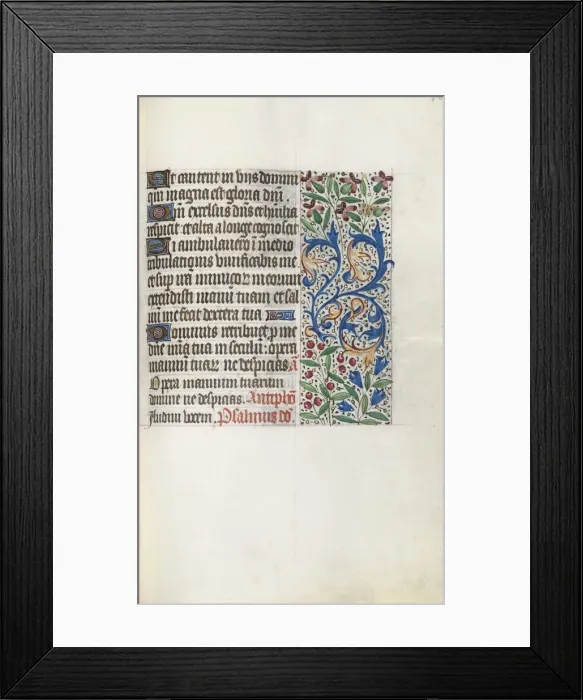 Et cantent in viis domini
qm̄ magna est gloria dn̄i
Qm̄ excelsus dn̄s et humilia
respicit et alta a longe cognoscit
Si ambulavero ī medio
tribulationis vivificabis me
et sup iram inimicoꝝ meorum
extendisti manū tuam et sal
vū me fecit dextera tua
Dominus retribuet p me
dn̄e mīa tua in seculū opera
manuū tuaꝝ ne despicias A
Opera manuum tuarum
domine ne despicias. Antiphō
Audivi vocem. Psalmus dd.